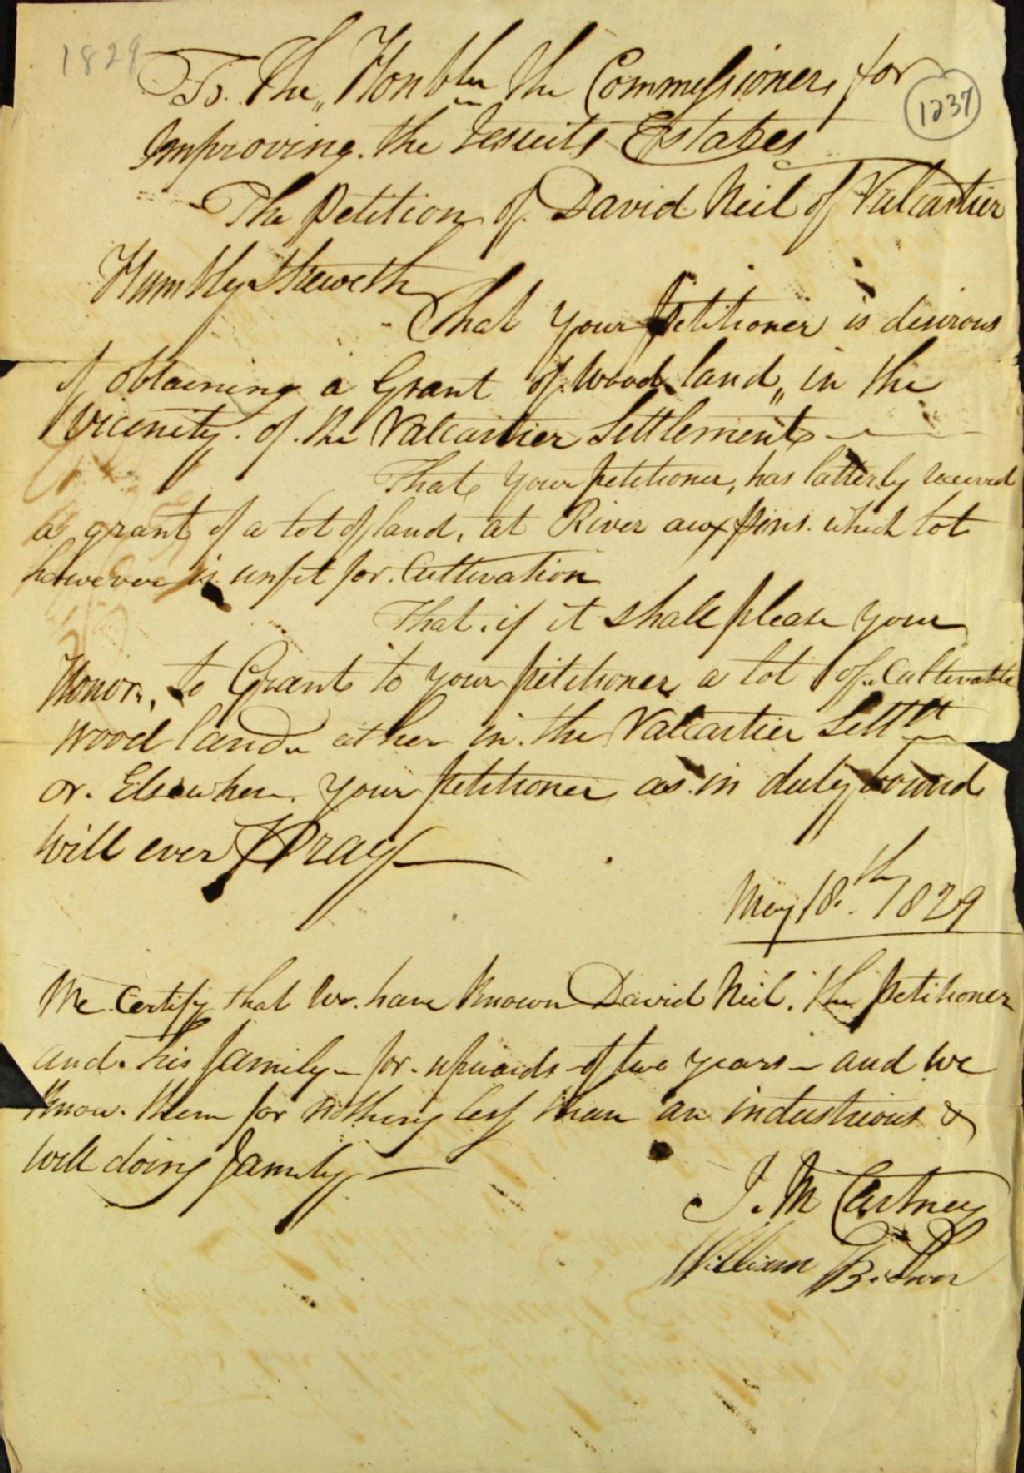 1829
To. The,, Honbler the Commissioners for
1237
Improving. the Jesuits Estates
The Petition of David Neil of Valcartier
Humbly Sheweth
That your Petitioner is desirous
of obtaining a Grant of Wood land,, in the
vicenity. of. the Valcartier Settlement
That your petitioner, has latterly received
a grant of a lot of land. at River aux pins. which lot
however is unfit for. Cultivation
That. if it shall please your
Honors, to Grant to your petitioner a lot of. Cultivatable
Wood land. either in. the Valcartier Settlt
or. Elsewhere. your Petitioner as in duty bound
will ever Pray
May 18.th 1829
We Certify that we. have Known David Neil. the petitioner
and. his family - for. upwards of two years - and we
Know. them for nothing less than an industrious &
well doing family -
J. McCartney
William Brown